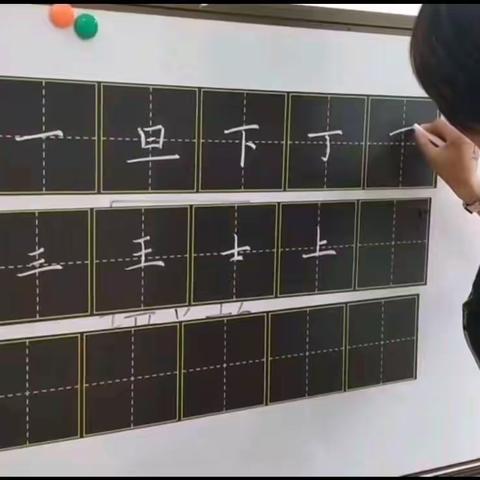 一 旦 下 丁 一
三 王 士 上